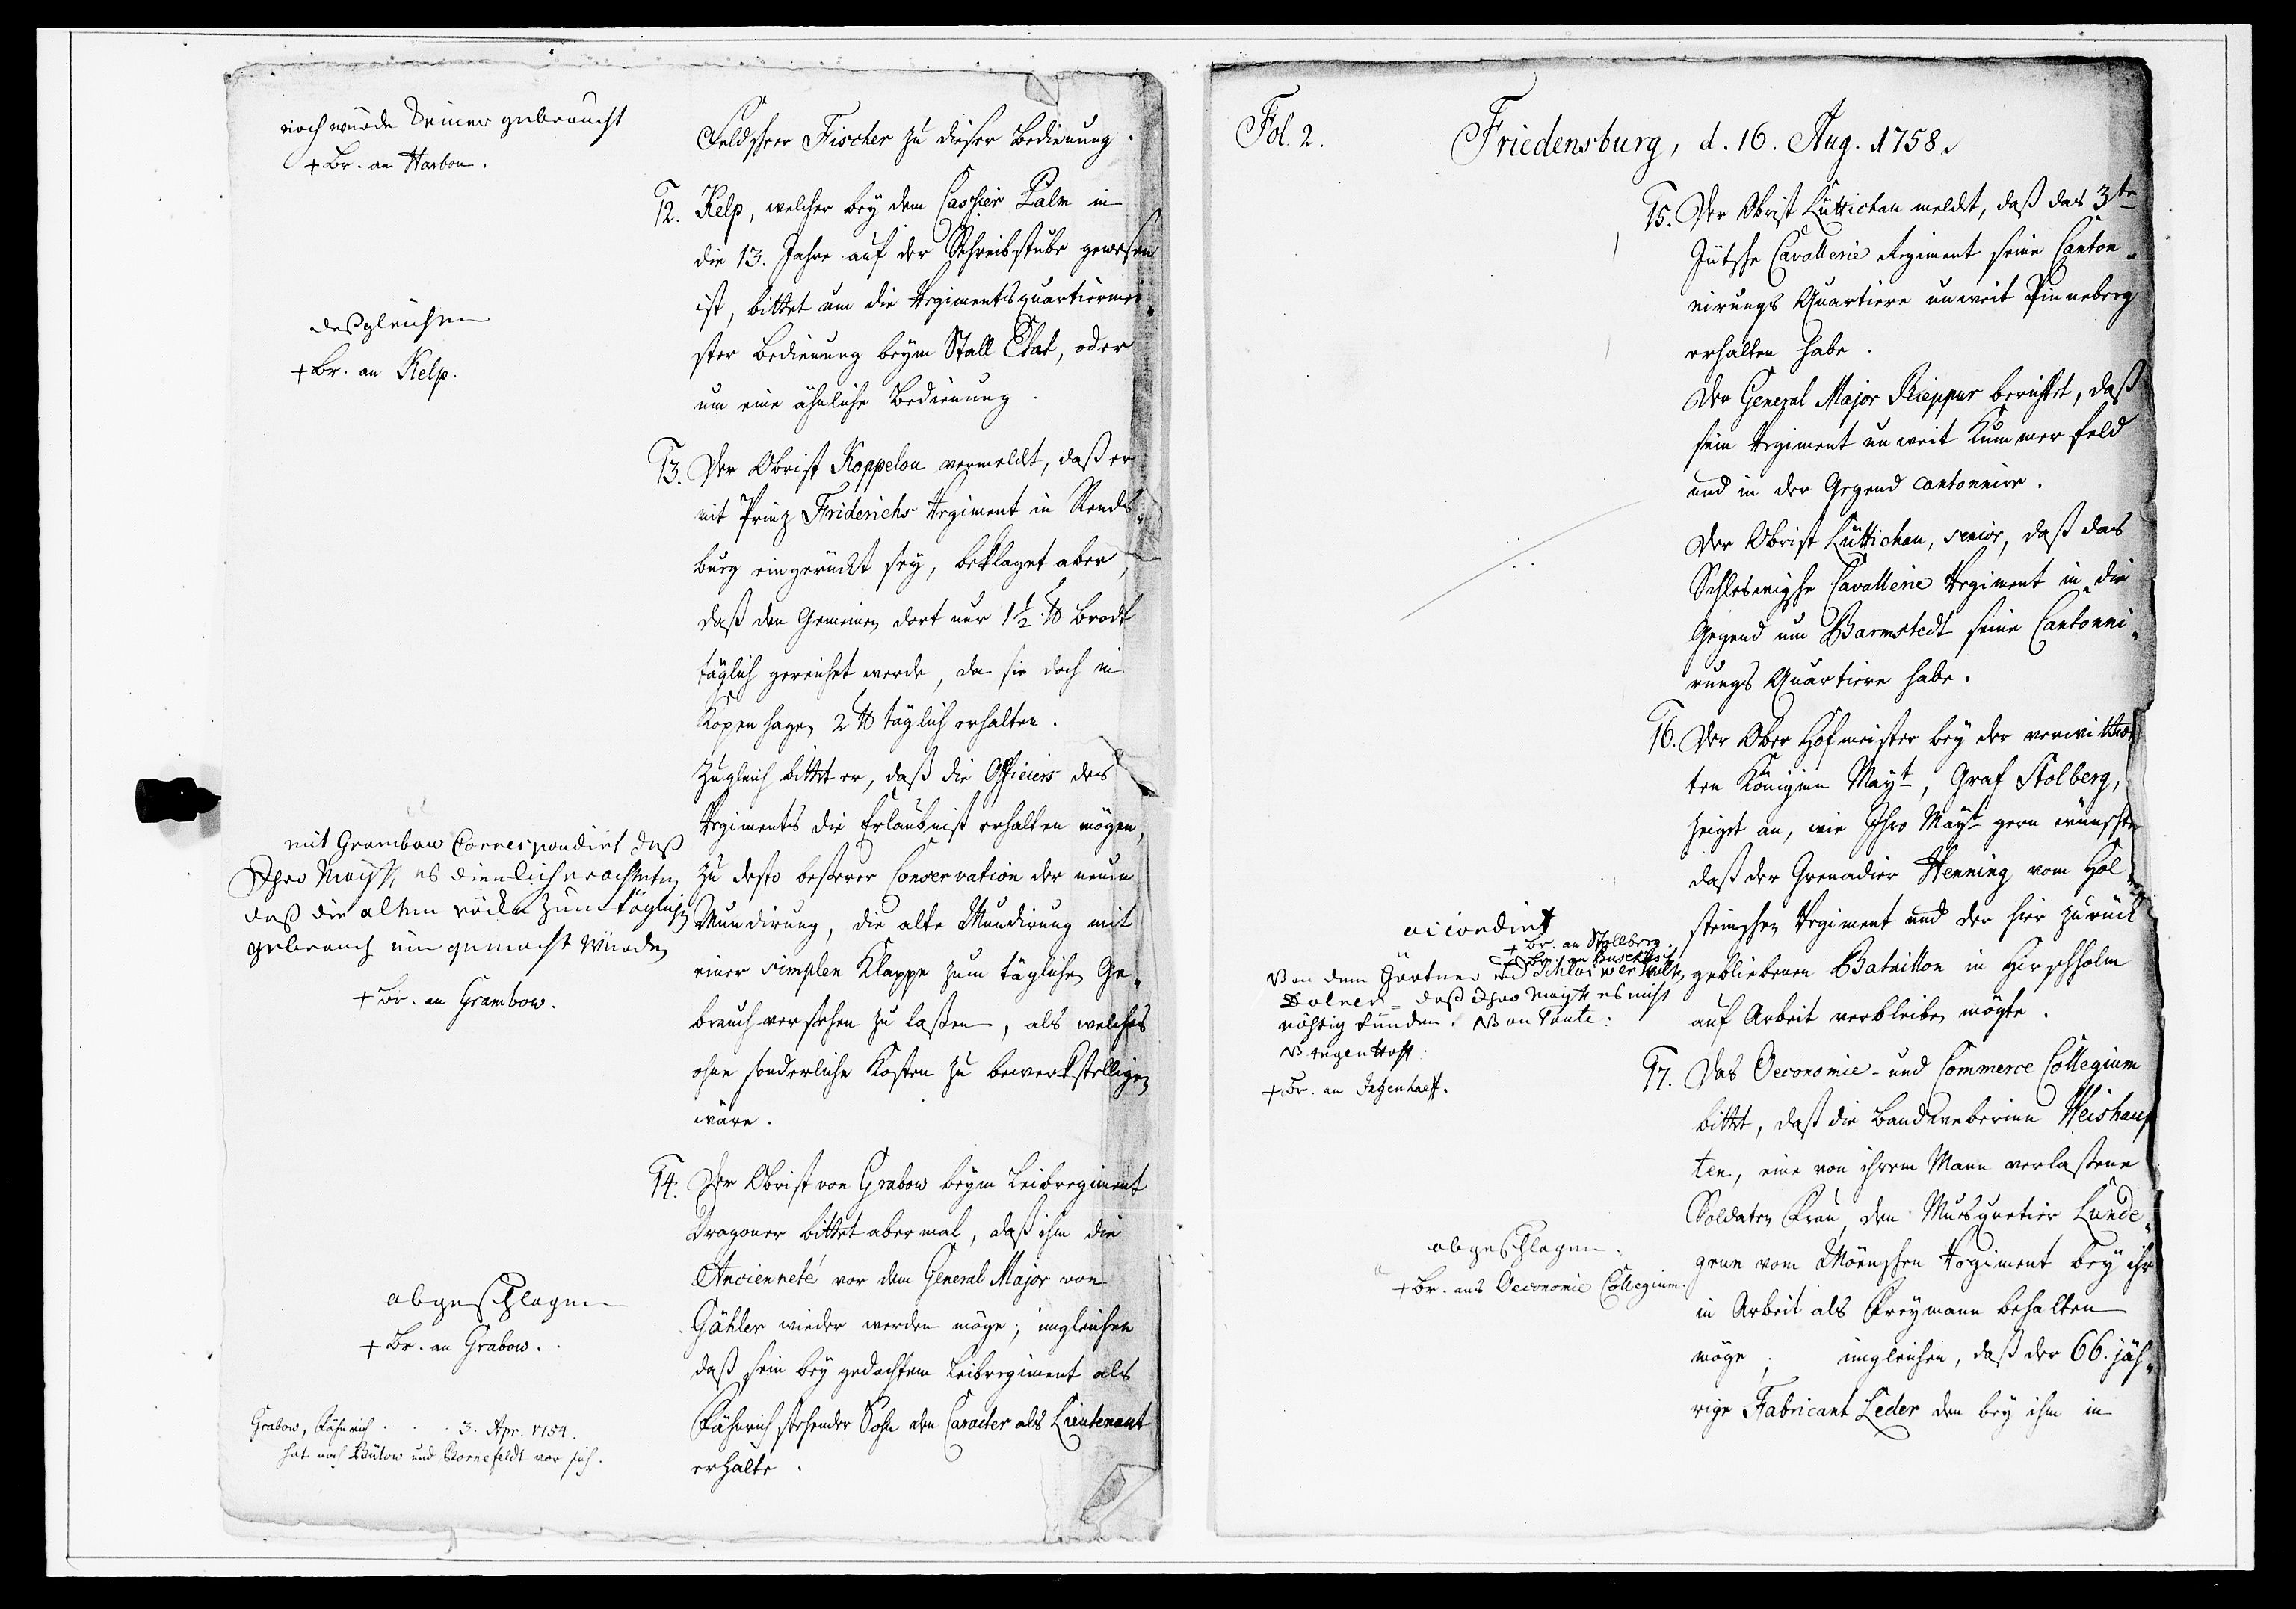 noch wurde keiner gebraucht
+ Br. an Harbou.
Feldscheer Fischer zu dieser Bedienung.
12. Kelp, welcher bey dem Cassier Palm in
die 13. Jahre auf der Schreibstube gewesen
ist, bittet um die Regimentsquartiermei-
ster Bedienung beym Stall Etat, oder
um eine ähnliche Bedienung.
desgleichen
+ Br. an Kelp.
13. Der Obrist Koppelou vermeldt, daß er
mit Prinz Friderichs Regiment in Rends-
burg eingerückt sey, beklaget aber,
daß den Gemeinen dort nur 1½ ℔ Brodt
täglich gereichet werde, da sie doch in
Kopenhagen 2 ℔ täglich erhalten.
Zugleich bittet er, daß die Officiers des
Regiments die Erlaubniß erhalten mögen,
zu desto beßerer Conservation der neuen
Mundirung, die alte Mundirung mit
einer simplen Klappe zum täglichen Ge-
brauch versehen zu laßen, als welches
ohne sonderliche Kosten zu bewerkstelligen
wäre.
mit Grambow Correspondirt daß
Ihro Mayst. es dienlich erachteten
daß die alten röcke zum täglichen
gebrauch um gemacht würden
+ Br. an Grambow.
14. Der Obrist von Grabow beym Leibregiment
Dragoner bittet abermal, daß ihm die
Ancienneté vor dem General Major von
Gähler wieder werden möge; imgleichen
daß sein bey gedachtem Leibregiment als
Fähnrich stehender Sohn den Caracter als Lieutenant
erhalte.
abgeschlagen
+ Br. an Grabow.
Grabow, Fähnrich . . . 3. Apr. 1754.
hat noch Bülow und Bornefeldt vor sich.
Fol. 2.
Friedensburg, d. 16. Aug. 1758.
15. Der Obrist Lüttichau meldt, daß das 3te
Jütsche Cavallerie Regiment seine Canton-
nirungs Quartiere unweit Pinneberg
erhalten habe.
Der General Major Rieppur berichtet, daß
sein Regiment unweit Kummerfeld
und in der Gegend cantonnire.
Der Obrist Lüttichau, senior, daß das
Schleswigsche Cavallerie Regiment in die
Gegend um Barmstedt seine Cantonni-
rungs Quartiere habe.
16. Der Ober Hofmeister bey der verwittwe-
ten Königinn Mayt., Graf Stolberg,
zeiget an, wie Ihro Mayt. gern wünschte
daß der Grenadier Henning vom Hol-
steinschen Regiment und der hier zurück
gebliebenen Bataillon in Hirschholm
auf Arbeit verbleiben mögte.
accordirt
+ Br. an Stollberg.
Von dem Gärtner und
daß Ihro Mayt. es nicht
nöhtig funden.
+ Br. an Jegenhoff.
17. Das Oeconomie- und Commerce Collegium
bittet, daß die Bandweberinn Weishaup-
ten, eine von ihrem Mann verlaßene
Soldaten Frau, den Musquetier Lunde-
grun vom Möenschen Regiment bey ihr
in Arbeit als Freymann behalten
möge; imgleichen, daß der 66. jäh-
rige Fabricant Leder den bey ihm in
abgeschlagen.
+ Br. ans Oeconomie Collegium.